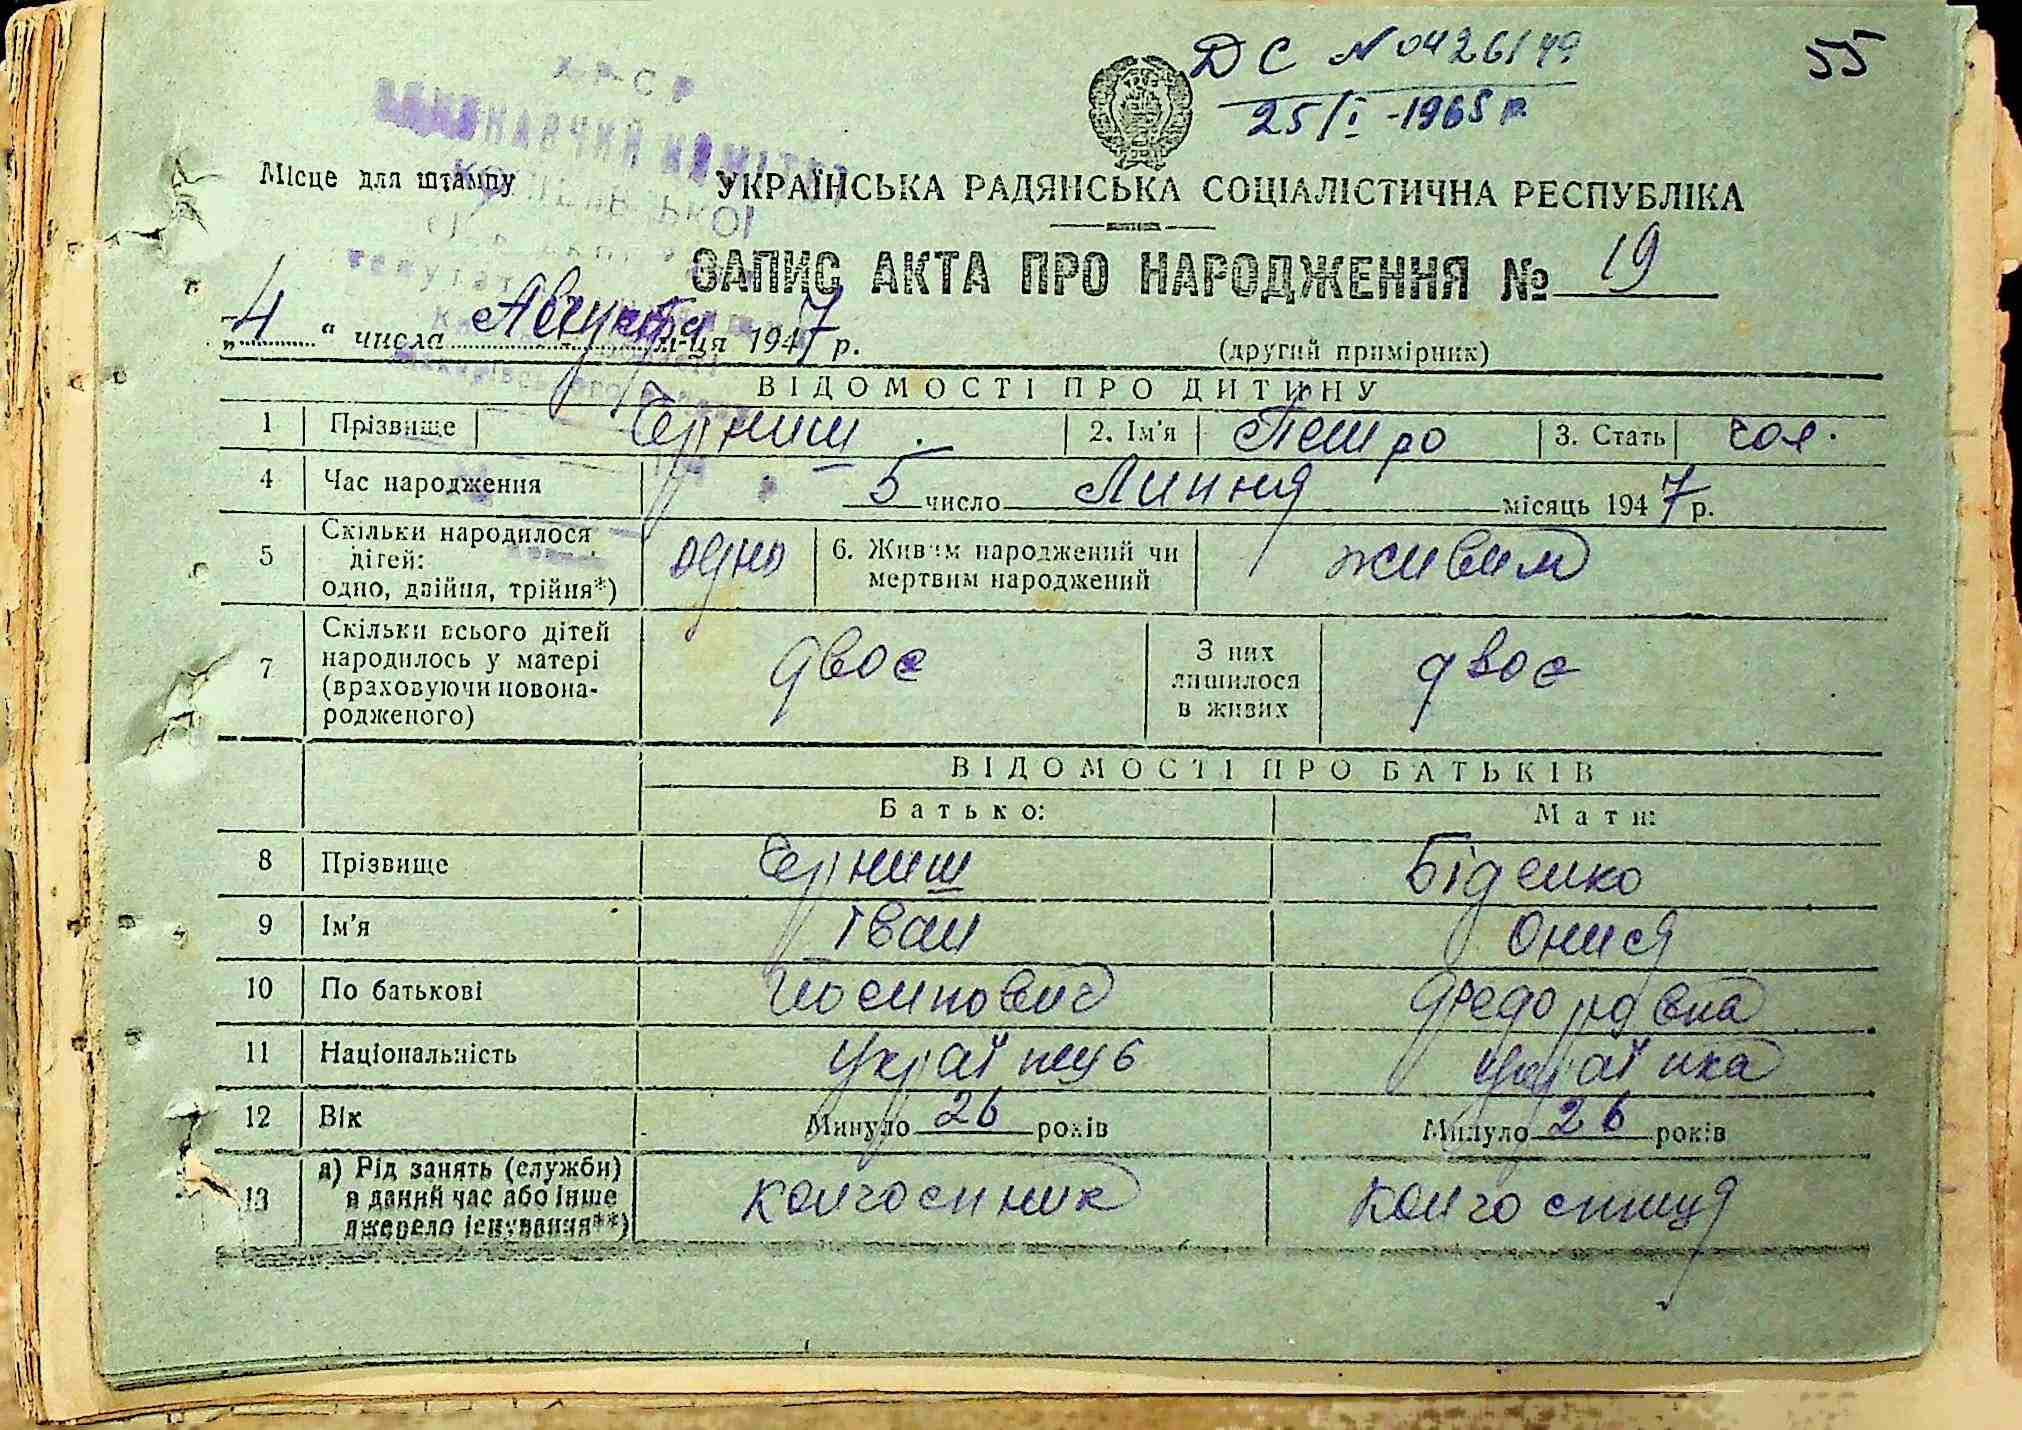 ДС N 0426149
25/I -1965 р
55
УРСР
ВИКОНАВЧИЙ КОМІТЕТ
Місце для штампу
УКРАЇНСЬКА РАДЯНСЬКА СОЦІАЛІСТИЧНА РЕСПУБЛІКА
ЗАПИС АКТА ПРО НАРОДЖЕННЯ № 19
„4“ числа Августа м-ця 1947 р.
(другий примірник)
ВІДОМОСТІ ПРО ДИТИНУ
1 Прізвище Черниш 2. Ім'я Петро 3. Стать чол.
4 Час народження 5 число Липня місяць 1947 р.
5 Скільки народилося дітей: одно, двійня, трійня*) одно 6. Живим народжений чи мертвим народжений живим
7 Скільки всього дітей народилось у матері (враховуючи новонародженого) двоє З них лишилося в живих двоє
ВІДОМОСТІ ПРО БАТЬКІВ
Батько: Мати:
8 Прізвище Черниш Біденко
9 Ім'я Іван Онися
10 По батькові Йосипович Федоровна
11 Національність українець українка
12 Вік Минуло 26 років Минуло 26 років
13 а) Рід занять (служби) в даний час або інше джерело існування**) колгоспник колгоспниця